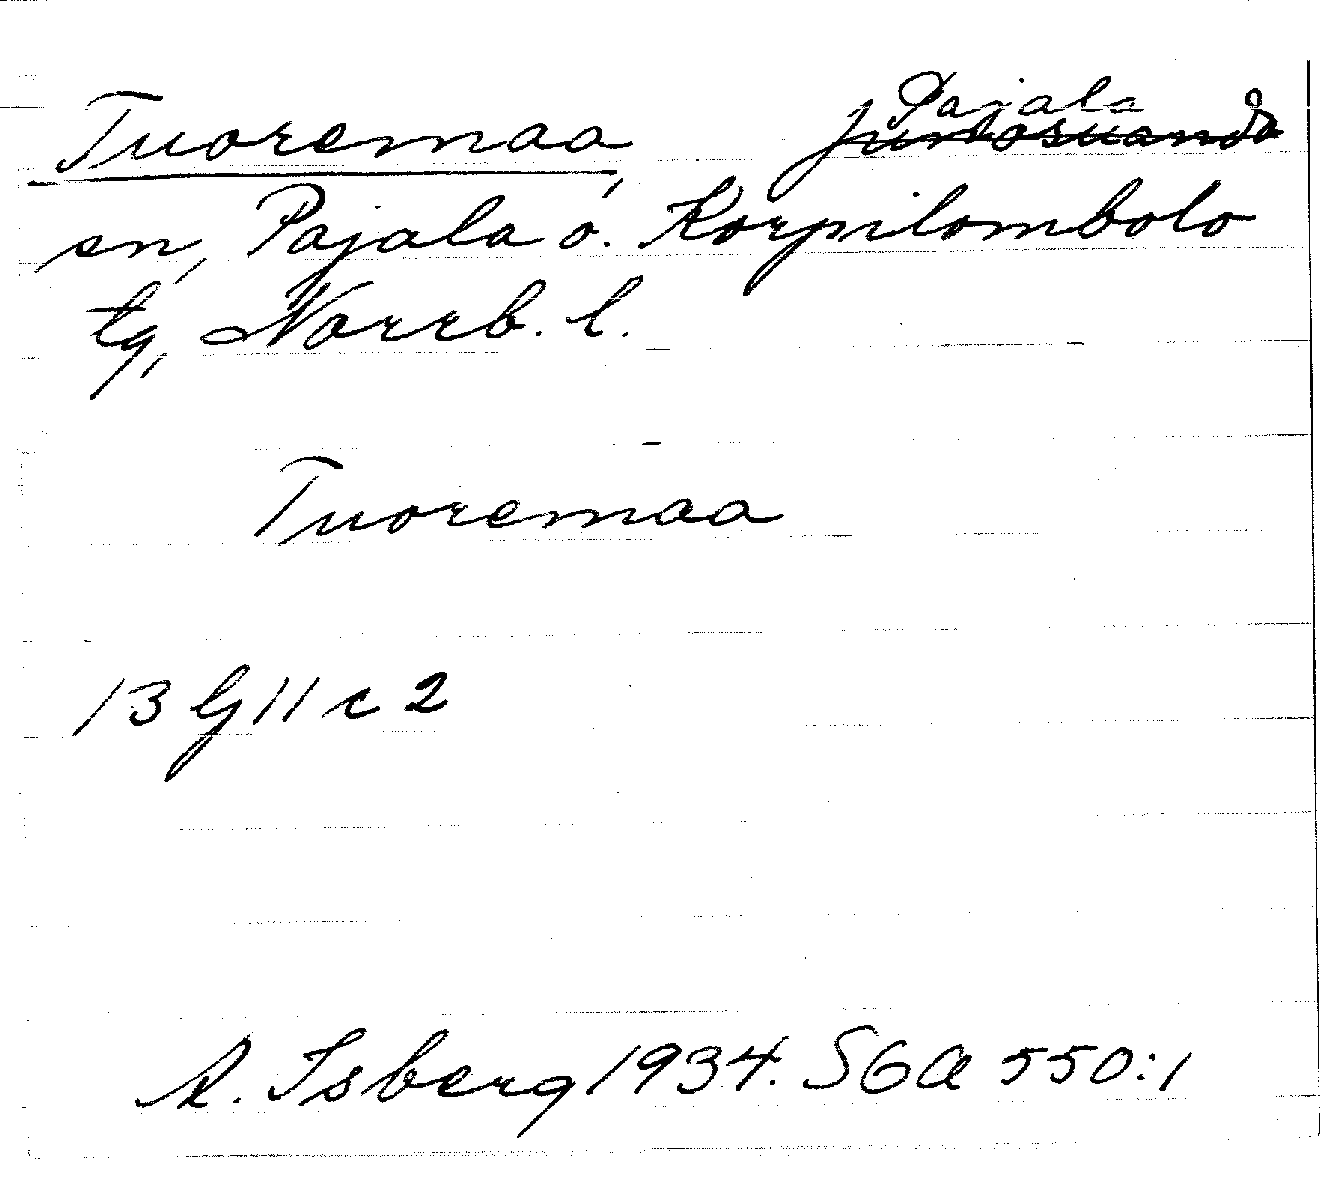 Tuoremaa, Pajala
Junkosuando
sn, Pajala o. Korpilombolo
tg, Norrb. l.
Tuoremaa
13 G 11 c 2
A. Isberg 1934. SGA 550:1